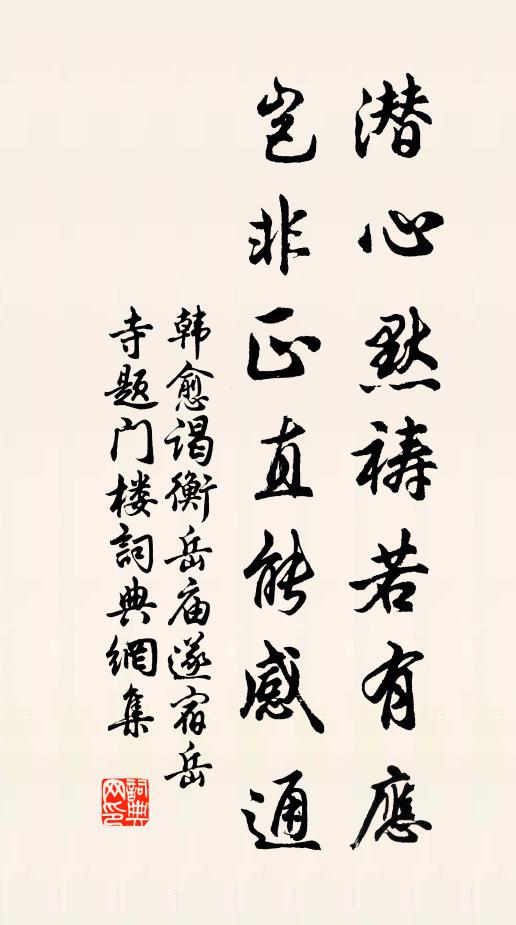 潜心默祷若有應
岂非正直能感通
韩愈谒衡岳庙遂宿岳
寺题门楼詞典網集
詞典
网印